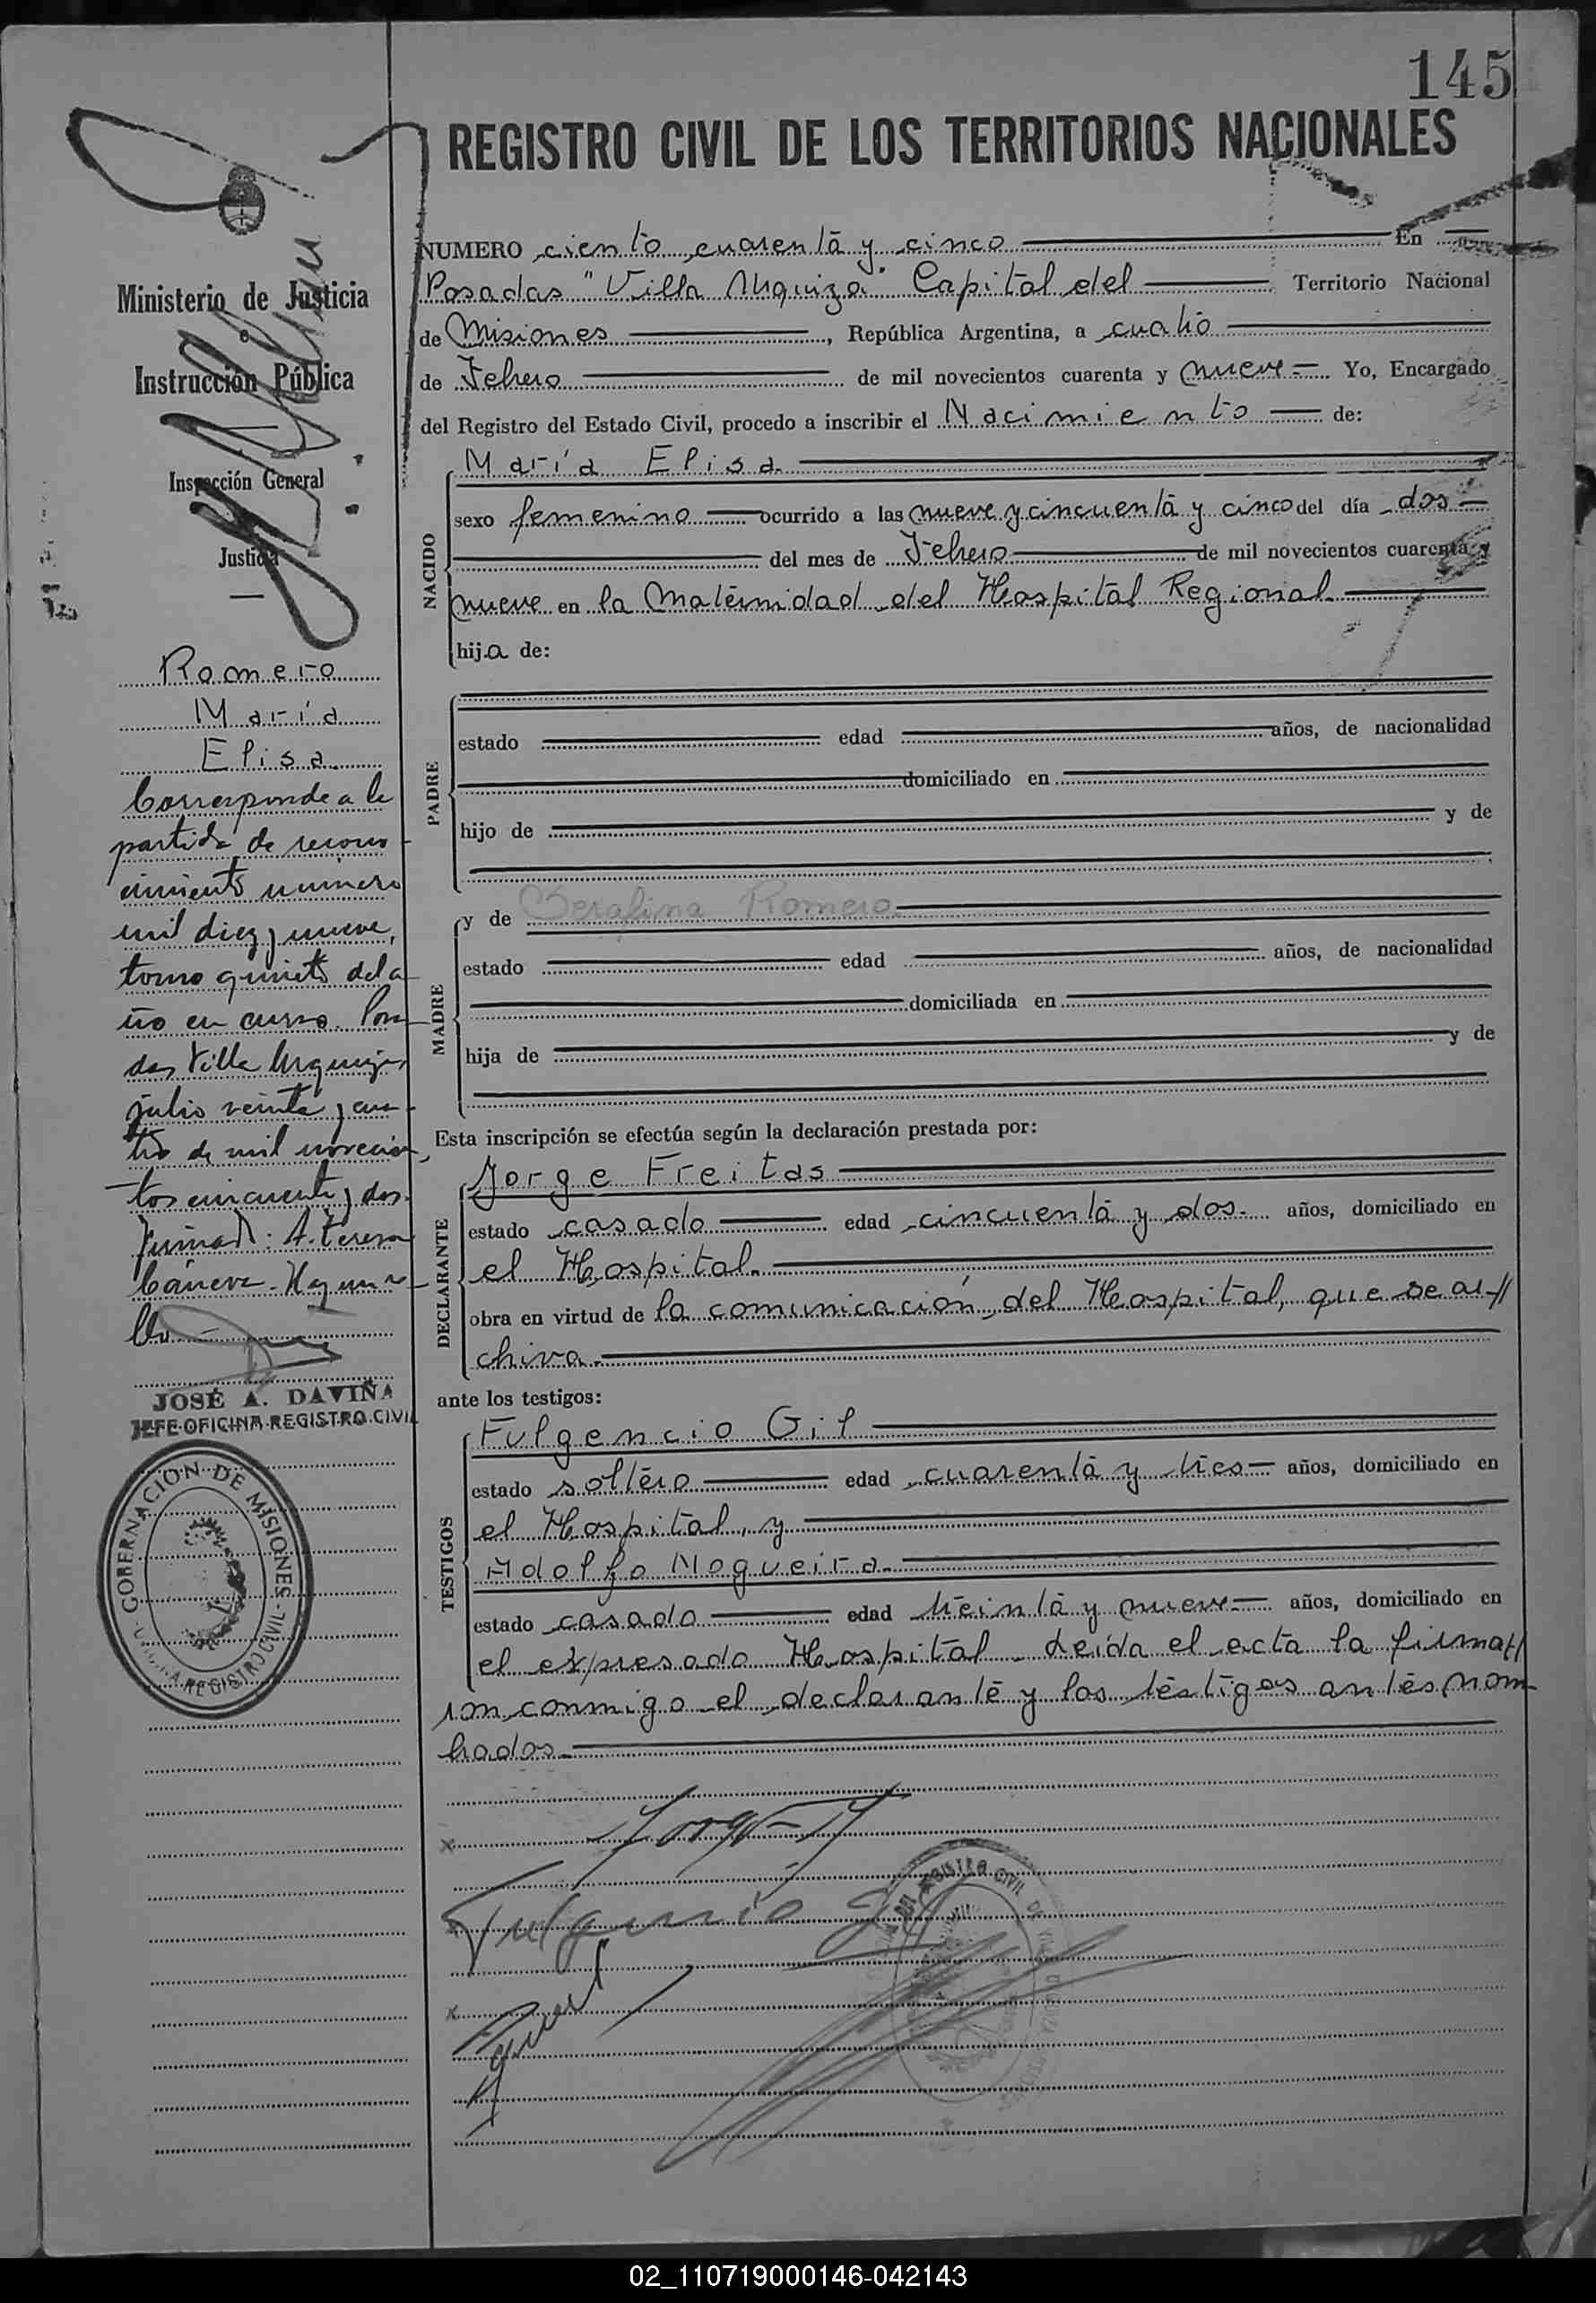 145
REGISTRO CIVIL DE LOS TERRITORIOS NACIONALES
Ministerio de Justicia
e
Instrucción Pública
Inspección General
Justicia
Romero
María
Elisa
Corresponde a la
partida de recono-
cimiento número
mil diez y nueve,
tomo quinto del a-
ño en curso. Posa-
das Villa Urquiza,
julio veinte y cua-
tro de mil novecien-
tos cincuenta y dos.
Firmado: A. Teresa
JOSÉ A. DAVIÑA
JEFE OFICINA REGISTRO CIVIL
GOBERNACION DE MISIONES
REGISTRO CIVIL
NUMERO ciento cuarenta y cinco En
Posadas "Villa Urquiza" Capital del Territorio Nacional
de Misiones, República Argentina, a cuatro
de Febrero de mil novecientos cuarenta y nueve Yo, Encargado
del Registro del Estado Civil, procedo a inscribir el Nacimiento de:
NACIDO
María Elisa
sexo femenino ocurrido a las nueve y cincuenta y cinco del día dos
del mes de Febrero de mil novecientos cuarenta y
nueve en la Maternidad del Hospital Regional.
hija de:
PADRE
estado edad años, de nacionalidad
domiciliado en
hijo de y de
MADRE
y de Serafina Romero
estado edad años, de nacionalidad
domiciliada en
hija de y de
Esta inscripción se efectúa según la declaración prestada por:
DECLARANTE
Jorge Freitas
estado casado edad cincuenta y dos. años, domiciliado en
el Hospital.
obra en virtud de la comunicación del Hospital, que se ar//
chiva.
ante los testigos:
TESTIGOS
Fulgencio Gil
estado soltero edad cuarenta y tres años, domiciliado en
el Hospital, y
Adolfo Nogueira.
estado casado edad treinta y nueve años, domiciliado en
el expresado Hospital. Leída el acta la firma//
ron conmigo el declarante y los testigos antes nom
brados.
Fulgencio Gil
REGISTRO CIVIL DE
02_110719000146-042143